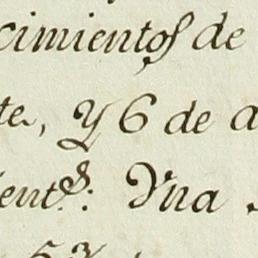 cimientos de
te, y 6 de a
ient.s: Yna